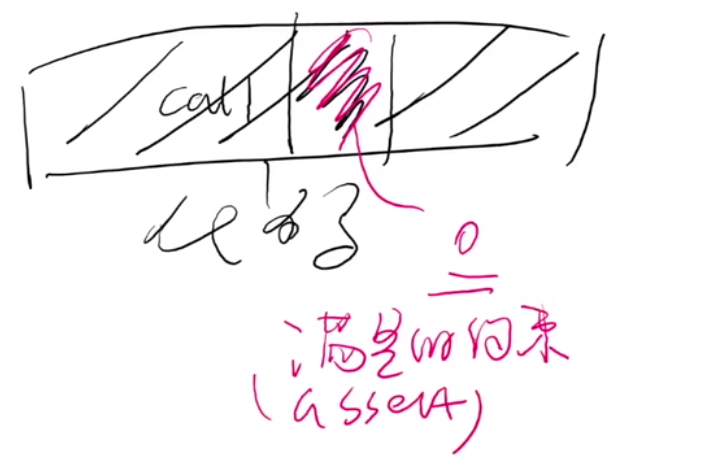 call
代码
0
满足的约束
(assert)